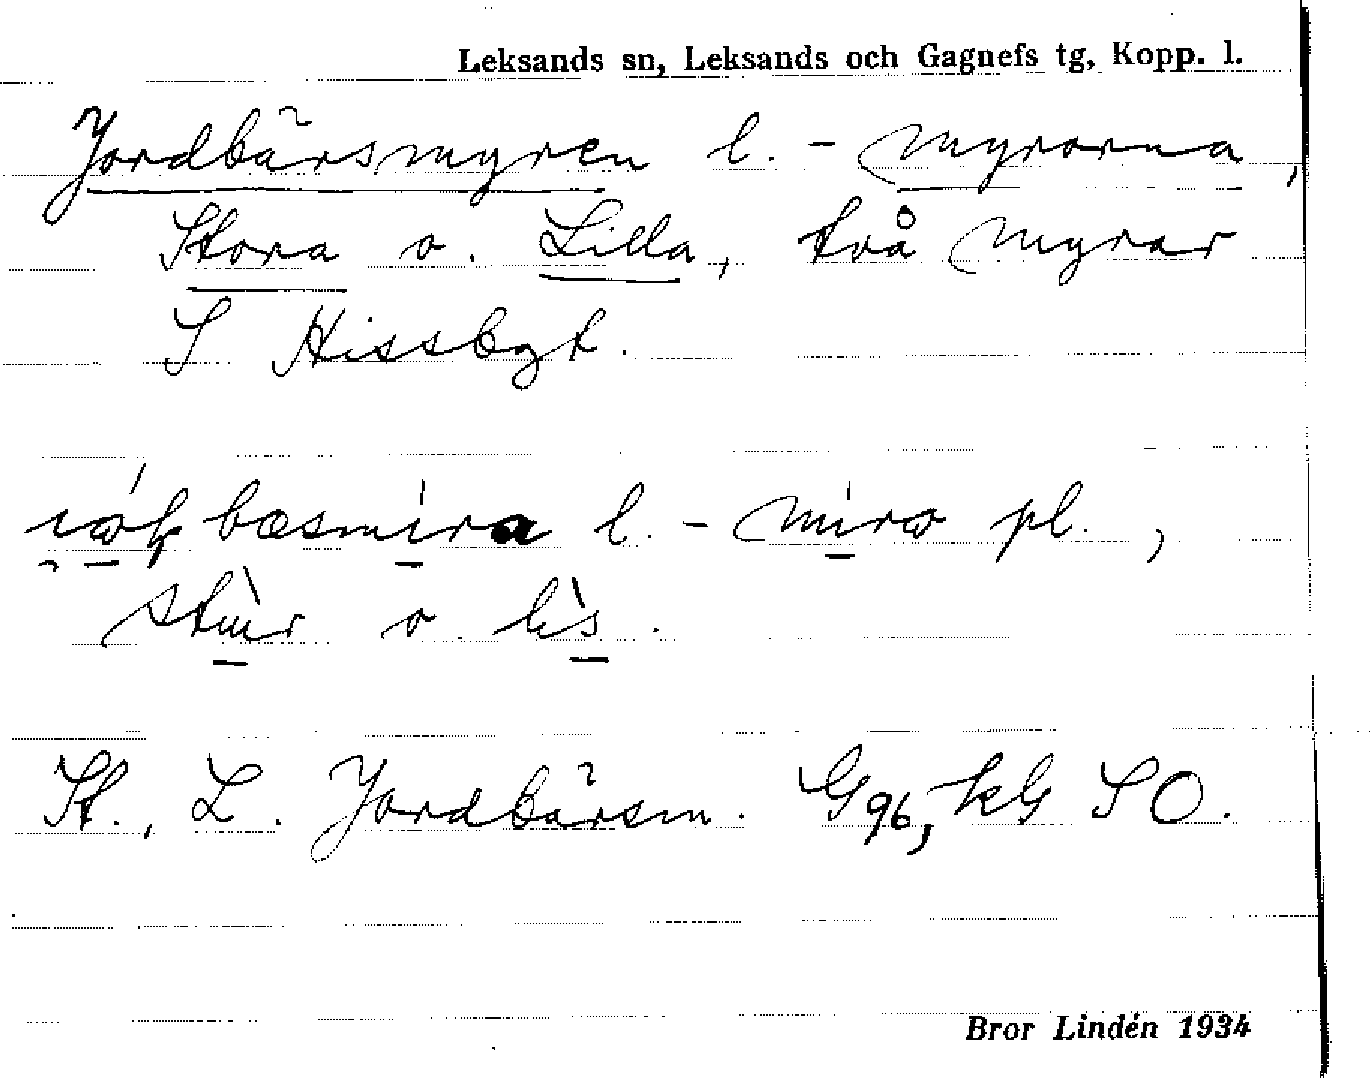 Leksands sn, Leksands och Gagnefs tg, Kopp. l.
Jordbärsmyren l. - myrorna,
Stora o. Lilla, två myrar
S Hissbgt.
bœsmira l. - mirɷ pl.,
stùr o lìs.
St., L. Jordbärsm. G 96, kG SO.
Bror Lindén 1934